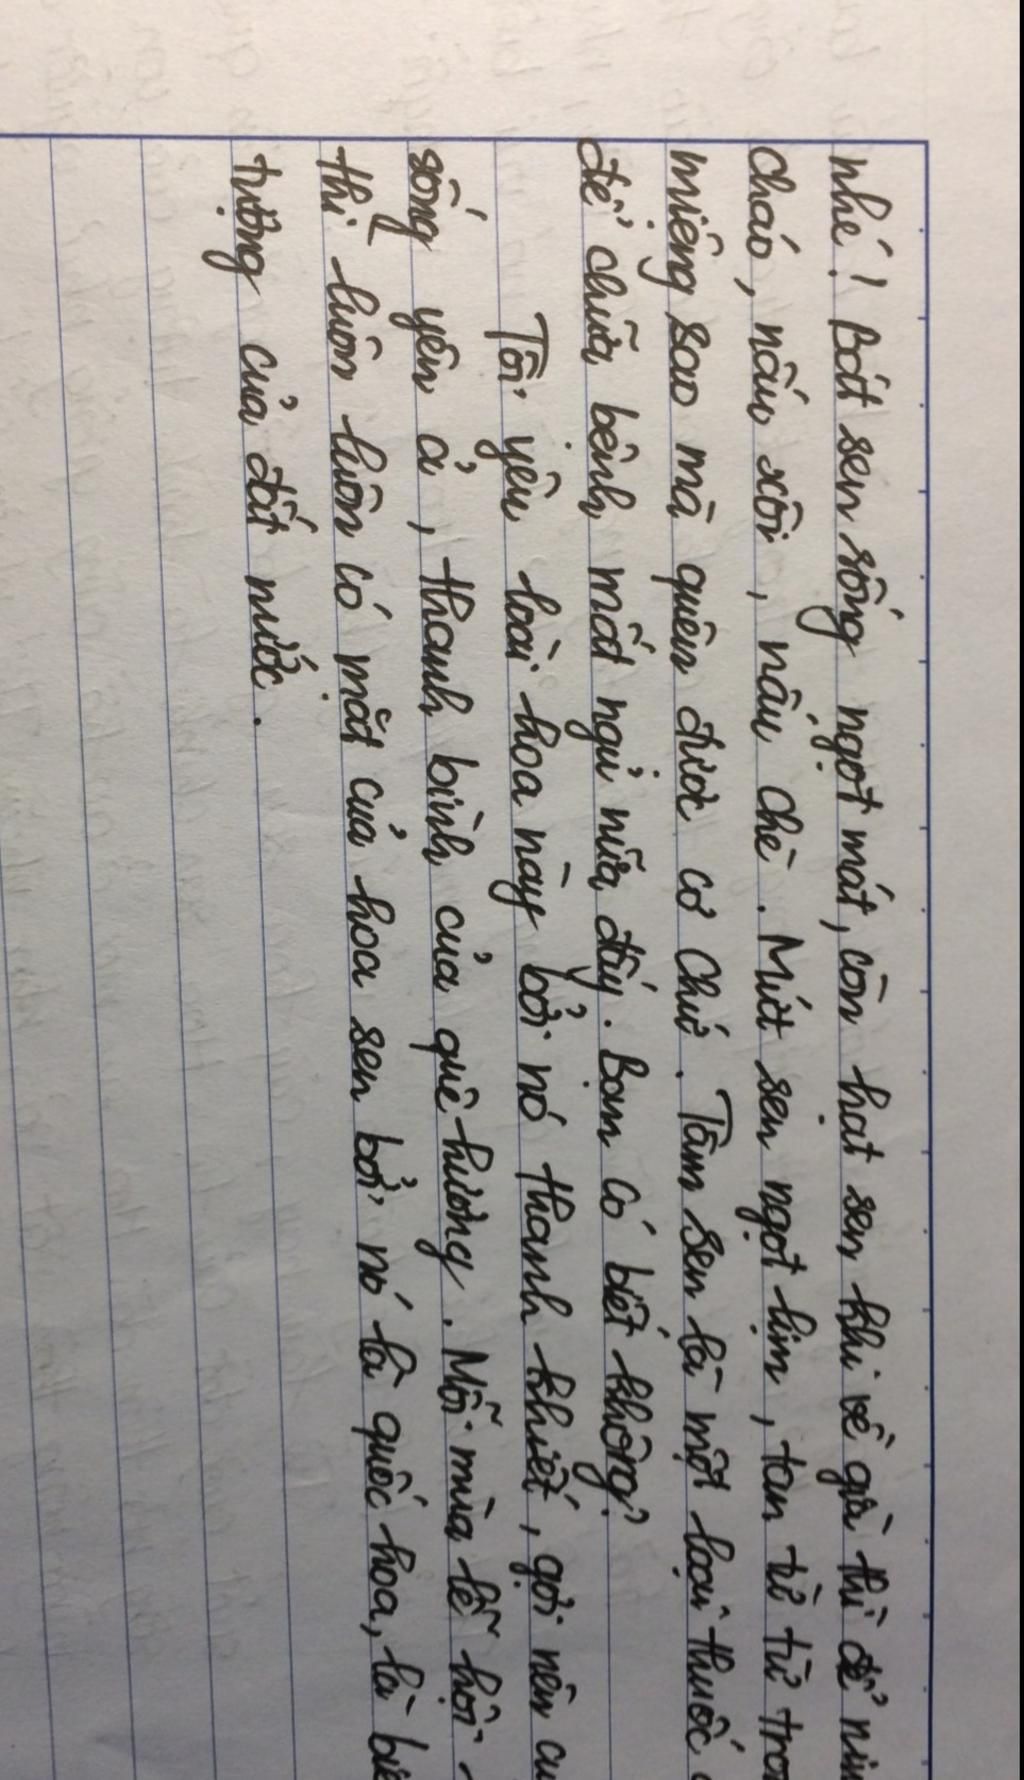 nhé! Bát sen sống ngọt mát, còn hạt sen khi về già thì để
cháo, nấu xôi, nấu chè. Mứt sen ngọt lịm, tan từ từ
miệng sao mà quên được cơ chứ. Tâm sen là một loại thuốc
để chữa bệnh mất ngủ nữa đấy. Bạn có biết không?
Tôi yêu loài hoa này bởi nó thanh khiết, gợi nên
sống yên ả, thanh bình của quê hương. Mỗi mùa lễ hội
thì luôn luôn có mặt của hoa sen bởi nó là quốc hoa, là
tượng của đất nước.